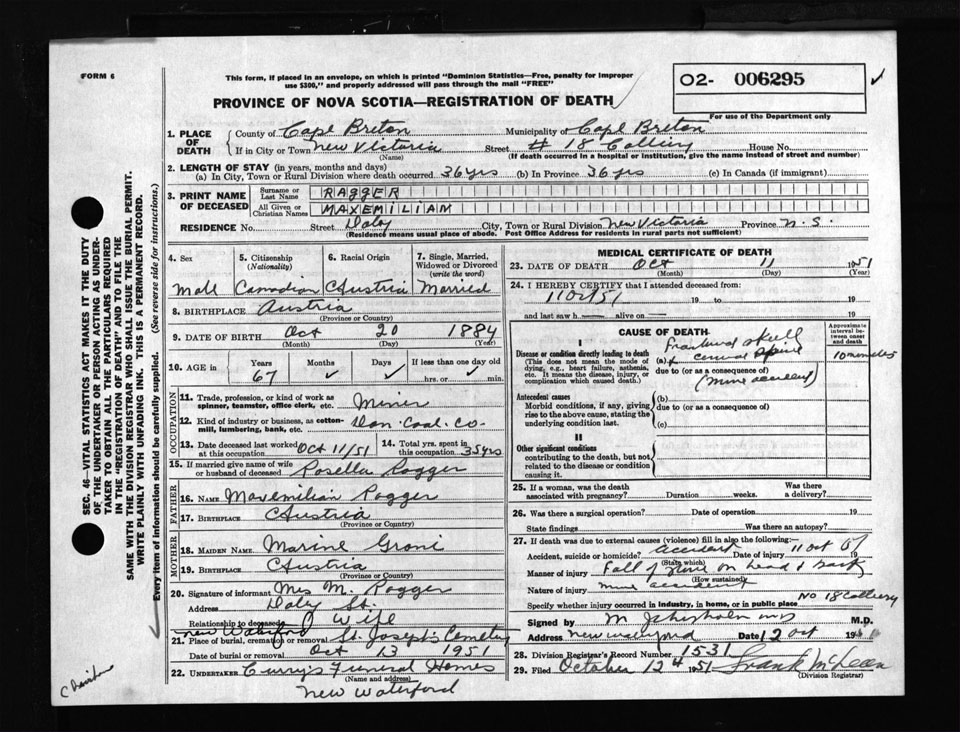 FORM 6
This form, if placed in an envelope, on which is printed "Dominion Statistics—Free, penalty for improper
use $300," and properly addressed will pass through the mail "FREE"
O2- 006295
For use of the Department only
PROVINCE OF NOVA SCOTIA—REGISTRATION OF DEATH
1. PLACE OF DEATH County of Cape Breton Municipality of Cape Breton
If in City or Town New Victoria Street # 18 Colliery House No.
(Name) (If death occurred in a hospital or institution, give the name instead of street and number)
2. LENGTH OF STAY (in years, months and days)
(a) In City, Town or Rural Division where death occurred 36 yrs (b) in Province 36 yrs (c) In Canada (if immigrant)
3. PRINT NAME OF DECEASED Surname or Last Name RAGGER
All Given or Christian Names MAXEMILIAM
RESIDENCE No. Street Daly City, Town or Rural Division New Victoria Province N.S.
(Residence means usual place of abode. Post Office Address for residents in rural parts not sufficient)
4. Sex 5. Citizenship (Nationality) 6. Racial Origin 7. Single, Married, Widowed or Divorced (write the word)
Male Canadian Austria Married
8. BIRTHPLACE Austria
(Province or Country)
9. DATE OF BIRTH Oct 20 1884
(Month) (Day) (Year)
10. AGE in Years Months Days If less than one day old
67 ✓ ✓ hrs. or ✓ min.
OCCUPATION
11. Trade, profession or kind of work as spinner, teamster, office clerk, etc. Miner
12. Kind of industry or business, as cotton-mill, lumbering, bank, etc. Dom. Coal. Co.
13. Date deceased last worked at this occupation Oct 11/51 14. Total yrs. spent in this occupation 35 yrs
15. If married give name of wife or husband of deceased Rosella Ragger
FATHER
16. NAME Maxemilian Ragger
17. BIRTHPLACE Austria
(Province or Country)
MOTHER
18. MAIDEN NAME Marine Groni
19. BIRTHPLACE Austria
(Province or Country)
20. Signature of informant Mrs M. Ragger
Address Daly St.
Relationship to deceased Wife
New Waterford
21. Place of burial, cremation or removal St. Joseph's Cemetery
Date of burial or removal Oct 13 1951
22. UNDERTAKER Curry's Funeral Homes
(Name and address)
New Waterford
MEDICAL CERTIFICATE OF DEATH
23. DATE OF DEATH Oct 11 1951
(Month) (Day) (Year)
24. I HEREBY CERTIFY that I attended deceased from:
11 Oct 51 19 to 19
and last saw h alive on 19
CAUSE OF DEATH
Approximate interval between onset and death
I
Disease or condition directly leading to death
(This does not mean the mode of dying, e.g., heart failure, asthenia, etc. It means the disease, injury, or complication which caused death.)
(a) Fractured skull
+ spine 10 minutes
due to (or as a consequence of)
(mine accident)
Antecedent causes
Morbid conditions, if any, giving rise to the above cause, stating the underlying condition last.
(b)
due to (or as a consequence of)
(c)
II
Other significant conditions
contributing to the death, but not related to the disease or condition causing it.
25. If a woman, was the death associated with pregnancy? Duration weeks. Was there a delivery?
26. Was there a surgical operation? Date of operation 19
State findings Was there an autopsy?
27. If death was due to external causes (violence) fill in also the following:—
Accident, suicide or homicide? accident Date of injury 11 Oct 51 19
(State which)
Manner of injury Fall of stone on head & back
(How sustained)
Nature of injury mine accident
Specify whether injury occurred in industry, in home, or in public place No 18 Colliery
Signed by M. Chisholm MD M.D.
Address New Waterford Date 12 Oct 19
28. Division Registrar's Record Number 1531
29. Filed October 12th 1951 Frank McLean
(Division Registrar)
SEC. 46—VITAL STATISTICS ACT MAKES IT THE DUTY
OF THE UNDERTAKER OR PERSON ACTING AS UNDER-
TAKER TO OBTAIN ALL THE PARTICULARS REQUIRED
IN THE "REGISTRATION OF DEATH" AND TO FILE THE
SAME WITH THE DIVISION REGISTRAR WHO SHALL ISSUE THE BURIAL PERMIT.
WRITE PLAINLY WITH UNFADING INK. THIS IS A PERMANENT RECORD.
Every item of information should be carefully supplied. (See reverse side for instructions.)